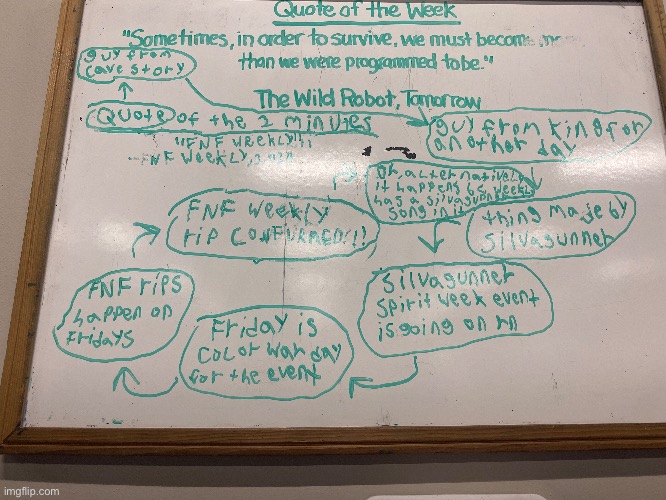 Quote of the Week
"Sometimes, in order to survive, we must become
than we were programmed to be."
The Wild Robot, Tomorrow
guy from
cave story
Quote of the 2 minutes
"FNF WEEKLY!!
FNF WEEKLY
guy from king for
another day
or, alternatively
it happens bc weekly
has a silvagunner
song in it
thing made by
silvagunner
FNF weekly
rip CONFURMED!!!
Silvagunner
spirit week event
is going on rn
FNF rips
happen on
Fridays
Friday is
color war day
for the event
imgflip.com